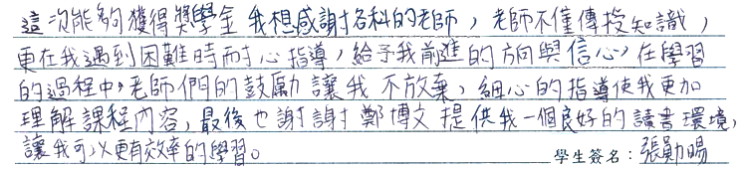 這次能夠獲得獎學金我想感謝各科的老師，老師不僅傳授知識，
更在我遇到困難時耐心指導，給予我前進的方向與信心，在學習
的過程中，老師們的鼓勵讓我不放棄，細心的指導使我更加
理解課程內容，最後也謝謝鄭博文提供我一個良好的讀書環境，
讓我可以更有效率的學習。 學生簽名：張勛暘